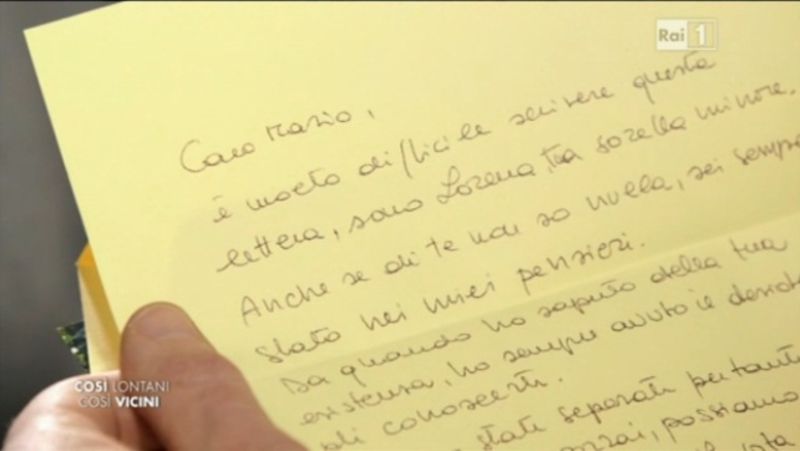 Rai 1
Caro Mario,
è molto difficile scrivere questa
lettera, sono Lorena, tua sorella minore.
Anche se di te non so nulla, sei sempre
stato nei miei pensieri.
Da quando ho saputo della tua
esistenza, ho sempre avuto il
di conoscerti.
stati separati per
possiamo
COSÌ LONTANI
COSÌ VICINI